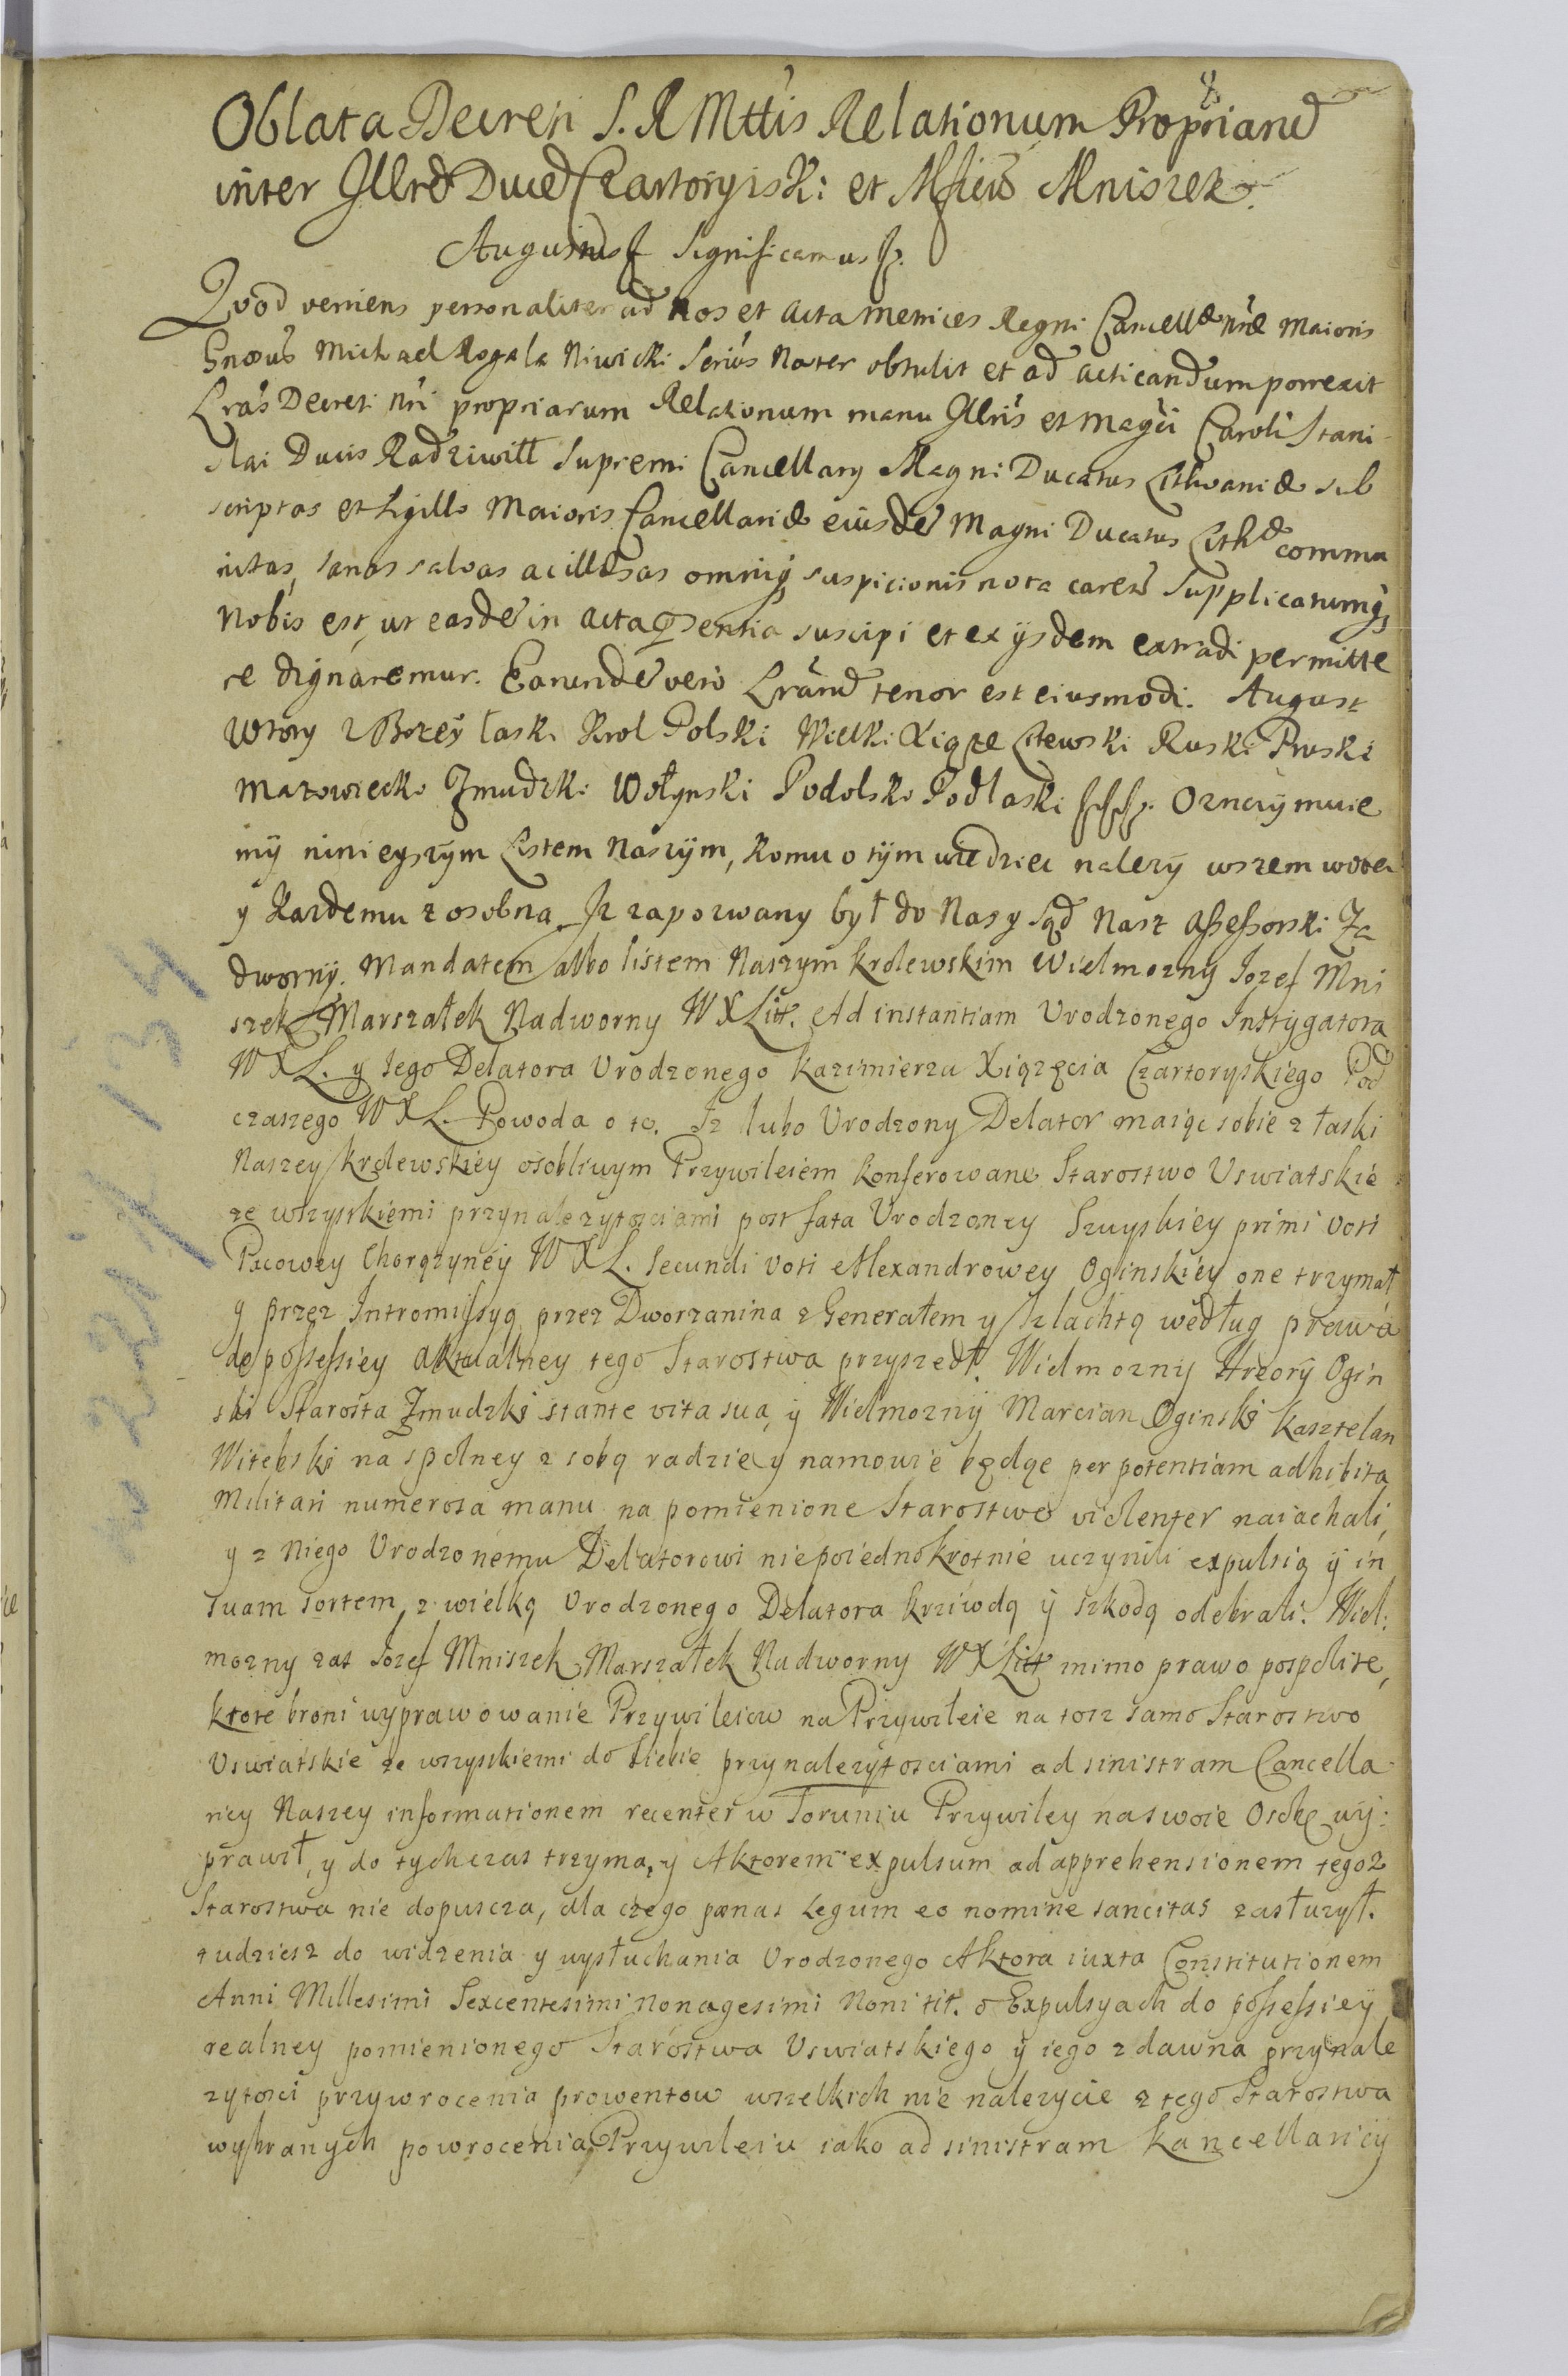 8
Oblata Decreti S. R Mttis Relationum Propriarũ
inter Illrẽ Ducẽ Czartoryiski et Mficũ Mniszek.
Augustus Significamus
Quod veniens personaliter ad nos et Acta Metrices Regni Cancellæ nræ Maioris
Gnosus Michael Rogala Niwicki Serius Noster obtulit et ad acticandum porrexit
Lras Decreti nri propriarum Relationum manu Illris et Magci Caroli Stani
slai Ducis Radziwiłł Supremi Cancellary Magni Ducatus Lithvaniæ sub
scriptas et Sigillo Maioris Cancellariæ eiusdẽ Magni Ducatus Lithæ commu
nitas, sanas salvas ac illæsas omniq suspicionis nota careñ Supplicatumq
Nobis est, ut easdẽ in acta psentia suscipi et ex ijsdem extradi permitte
re dignaremur. Earundẽ vero Lrarũ tenor est eiusmodi. August
Wtory z Bozey łaski Krol Polski Wielki Xiąze Litewski Ruski Pruski
Mazowiecki Zmudzki Wołynski Podolski Podlaski Oznaymuie
my ninieyszym Listem Naszym, komu o tym wiedziec nalezy wszem wobec
y Kazdemu z osobna. Iz zapozwany był do Nas y Sąd Nasz Assessorski Za
dworny. Mandatem albo listem Naszym krolewskim Wielmozny Iozef Mni
szek Marszałek Nadworny W X Litt. Ad instantiam Urodzonego Instygatora
W X L. y Iego Delatora Urodzonego Kazimierza Xiązęcia Czartoryskiego Pod
czaszego W X L. Powoda o to. Iz lubo Urodzony Delator maiąc sobie z łaski
Naszey krolewskiey osobliwym Przywileiem konferowane Starostwo Uswiatskie
ze wszystkiemi przynalezytosciami post fata Urodzoney Szuyskiey primi voti
Pacowey Chorązyney W X L. Secundi voti Alexandrowey Oginskiey one trzymał
y przez Intromissyą przez Dworzanina z Generałem y szlachtą według prawa
do possessiey aktualney tego Starostwa przyszedł. Wielmozny Hreory Ogin
ski Starosta Zmudzki stante vita sua, y Wielmozny Marcian Oginski Kasztelan
Witebski na spolney z sobą radzie y namowie będąc per potentiam adhibita
Militari numerosa manu na pomienione Starostwo violenter naiachali,
y z niego Urodzonemu Delatorowi niepoiednokrotnie uczynili expulsią y in
suam sortem, z wielką Urodzonego Delatora krziwdą y szkodą odebrali. Wiel:
mozny zas Iozef Mniszek Marszałek Nadworny W X Litt mimo prawo pospolite,
ktore broni wyprawowanie Przywileiow na Przywileie na tosz samo Starostwo
Uswiatskie ze wszyskiemi do siebie przynalezytosciami ad sinistram Cancella
riey Naszey informationem recenter w Toruniu Przywiley na swoie Osobę wy:
prawił, y do tychczas trzyma, y Aktorem expulsum ad apprehensionem tegoz
Starostwa nie dopuscza, dla czego pænas Legum eo nomine sancitas zasłuzył.
tudziesz do widzenia y wysłuchania Urodzonego Aktora iuxta Constitutionem
Anni Millesimi Sexcentesimi Nonagesimi Noni tit. o Expulsyach do possessiey
realney pomienionego Starostwa Uswiatskiego y iego z dawna przynale
zytosci przywrocenia prowentow wszelkich nie nalezycie z tego Starostwa
wybranych powrocenia, Przywileiu iako ad sinistram Kancellariey